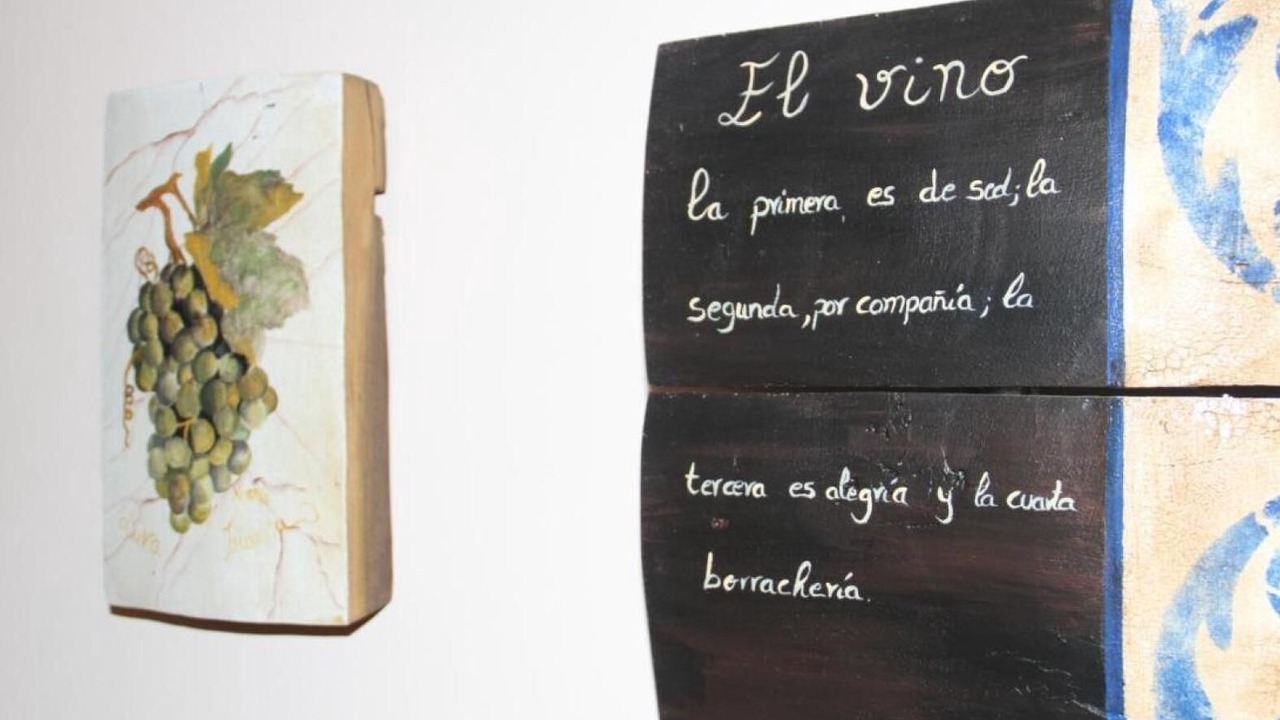 El vino
la primera, es de sed; la
segunda, por compañía; la
tercera es alegría y la cuarta
borrachería.